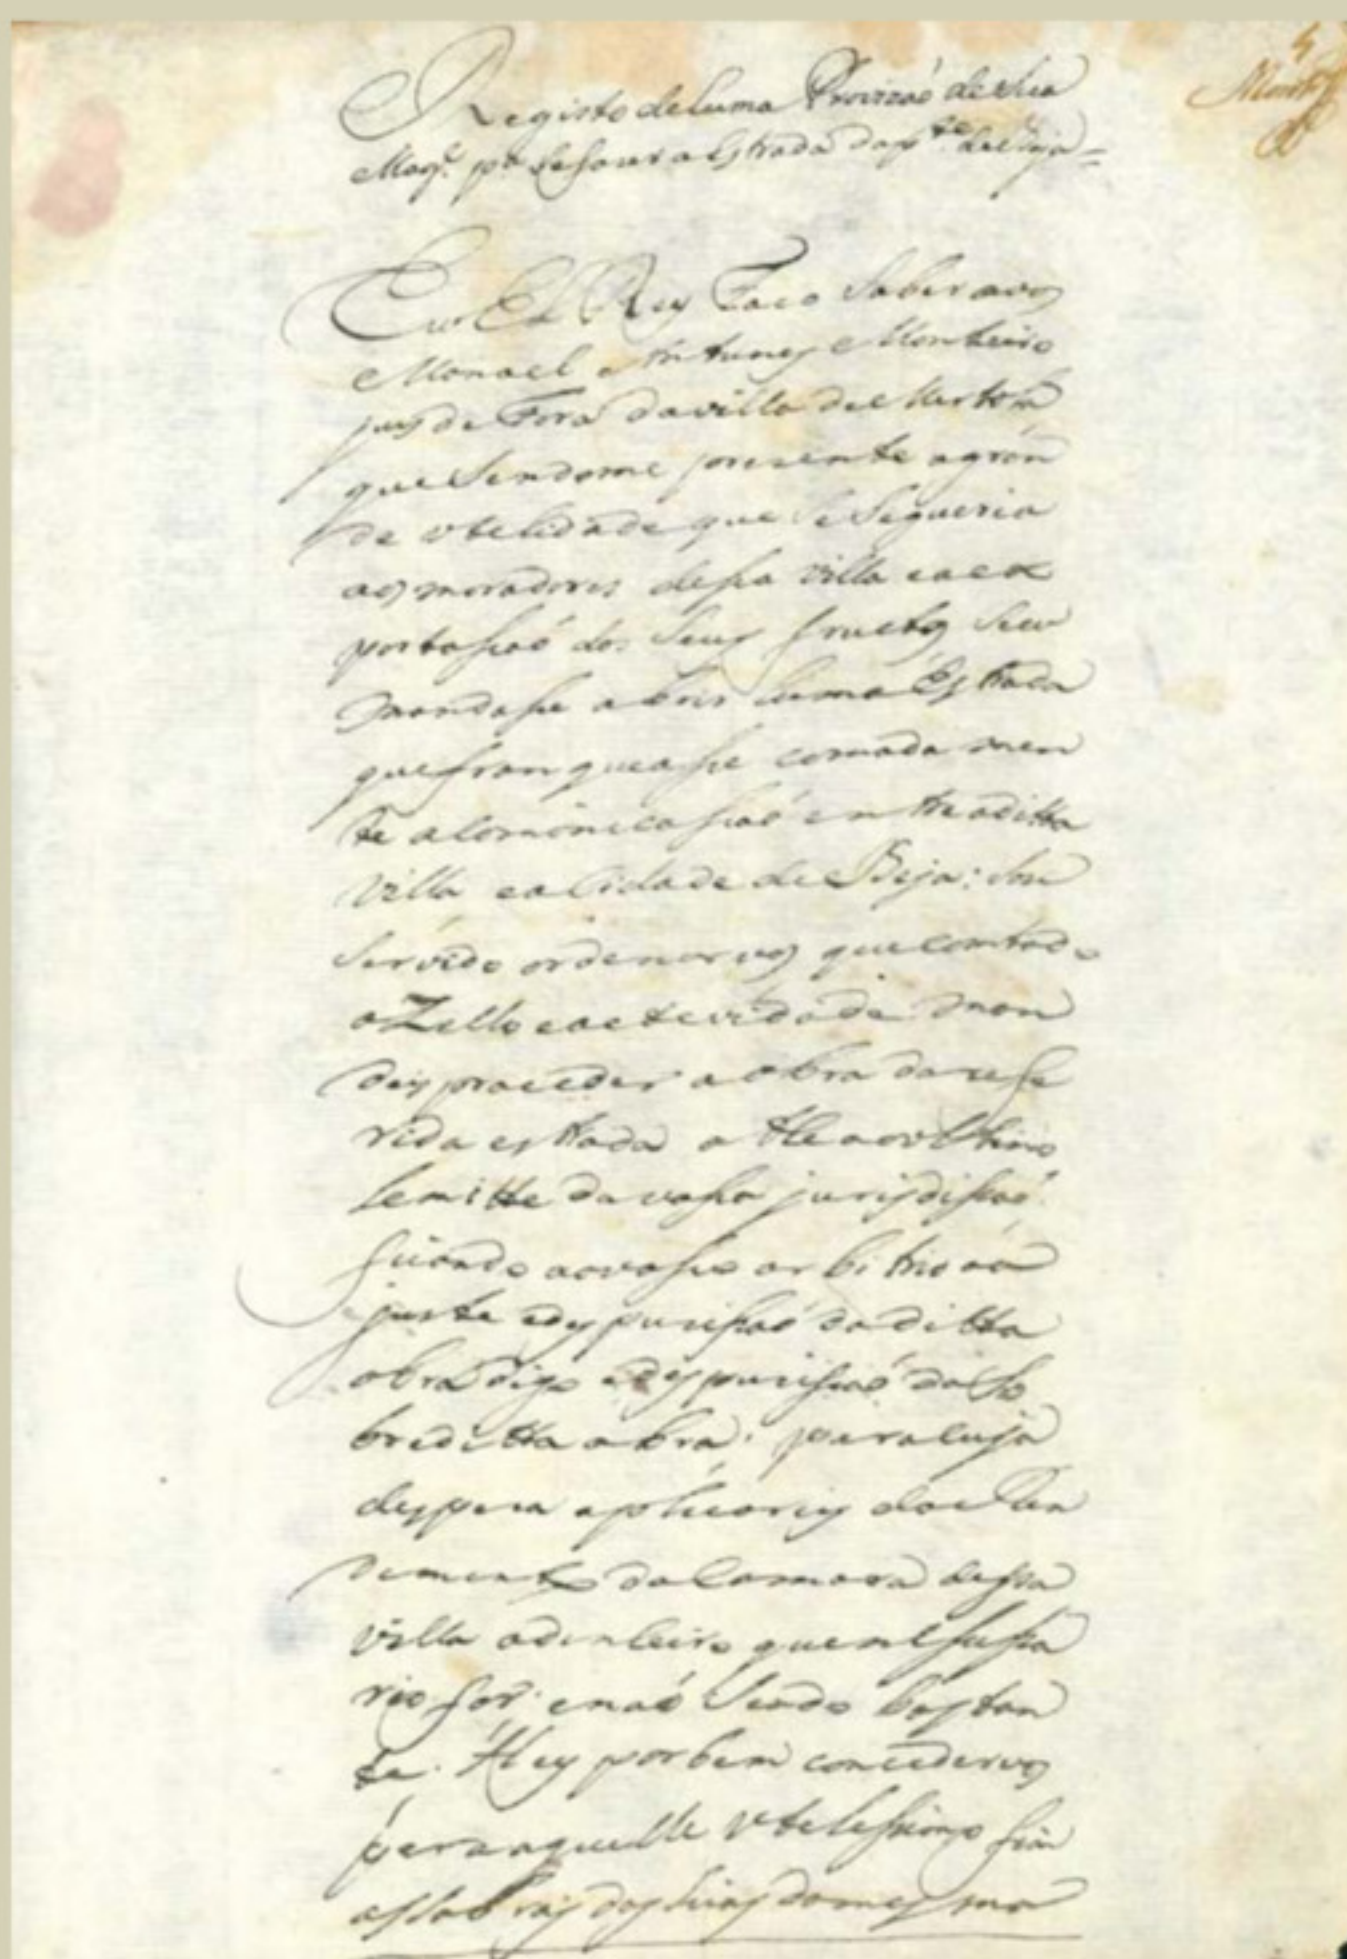 5
Registo de huma Provizaõ de Sua
Mag.e p.a se fazer a Estrada da p.te de Beja=
Eu El Rey Faco Saber avos
Manoel Antunes Monteiro
juis de Fora da villa de Mertola
que Sendome prezente a gran
de vtelidade que se Segueria
aos moradores desta villa e a ex
portassaõ dos Seus fructos Seu
mandasse abrir huma Estrada
que franqueasse comada men
te a Comonicassaõ entre a ditta
villa e a Cidade de Beja: Sou
Servido ordenarvos que com todo
o Zello e actevidade man
deis proceder a obra da refe
rida estrada athe ao vlthimo
Lemitte da vossa jurisdissaõ:
ficando ao vosso arbitrio o a
juste e despuzissaõ da ditta
obra digo e despuzissaõ da So
breditta obra: para cuja
despeza aplicareis do Ren
demento da Camara dessa
villa o dinheiro que nessessa
rio for: e naõ Sendo bastan
te. Hey por bem concedervos
para aquelle vtelissimo fim
as das mesma